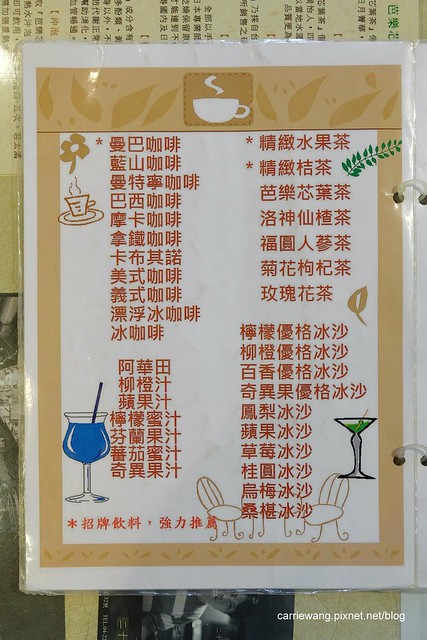 * 曼巴咖啡
藍山咖啡
曼特寧咖啡
巴西咖啡
摩卡咖啡
拿鐵咖啡
卡布其諾
美式咖啡
義式咖啡
漂浮冰咖啡
冰咖啡
阿華田
柳橙汁
蘋果汁
檸檬蜜汁
芬蘭果汁
蕃茄蜜汁
奇異果汁
* 精緻水果茶
* 精緻桔茶
芭樂芯葉茶
洛神仙楂茶
福圓人蔘茶
菊花枸杞茶
玫瑰花茶
檸檬優格冰沙
柳橙優格冰沙
百香優格冰沙
奇異果優格冰沙
鳳梨冰沙
蘋果冰沙
草莓冰沙
桂圓冰沙
烏梅冰沙
桑椹冰沙
*招牌飲料，強力推薦
carriewang.pixnet.net/blog